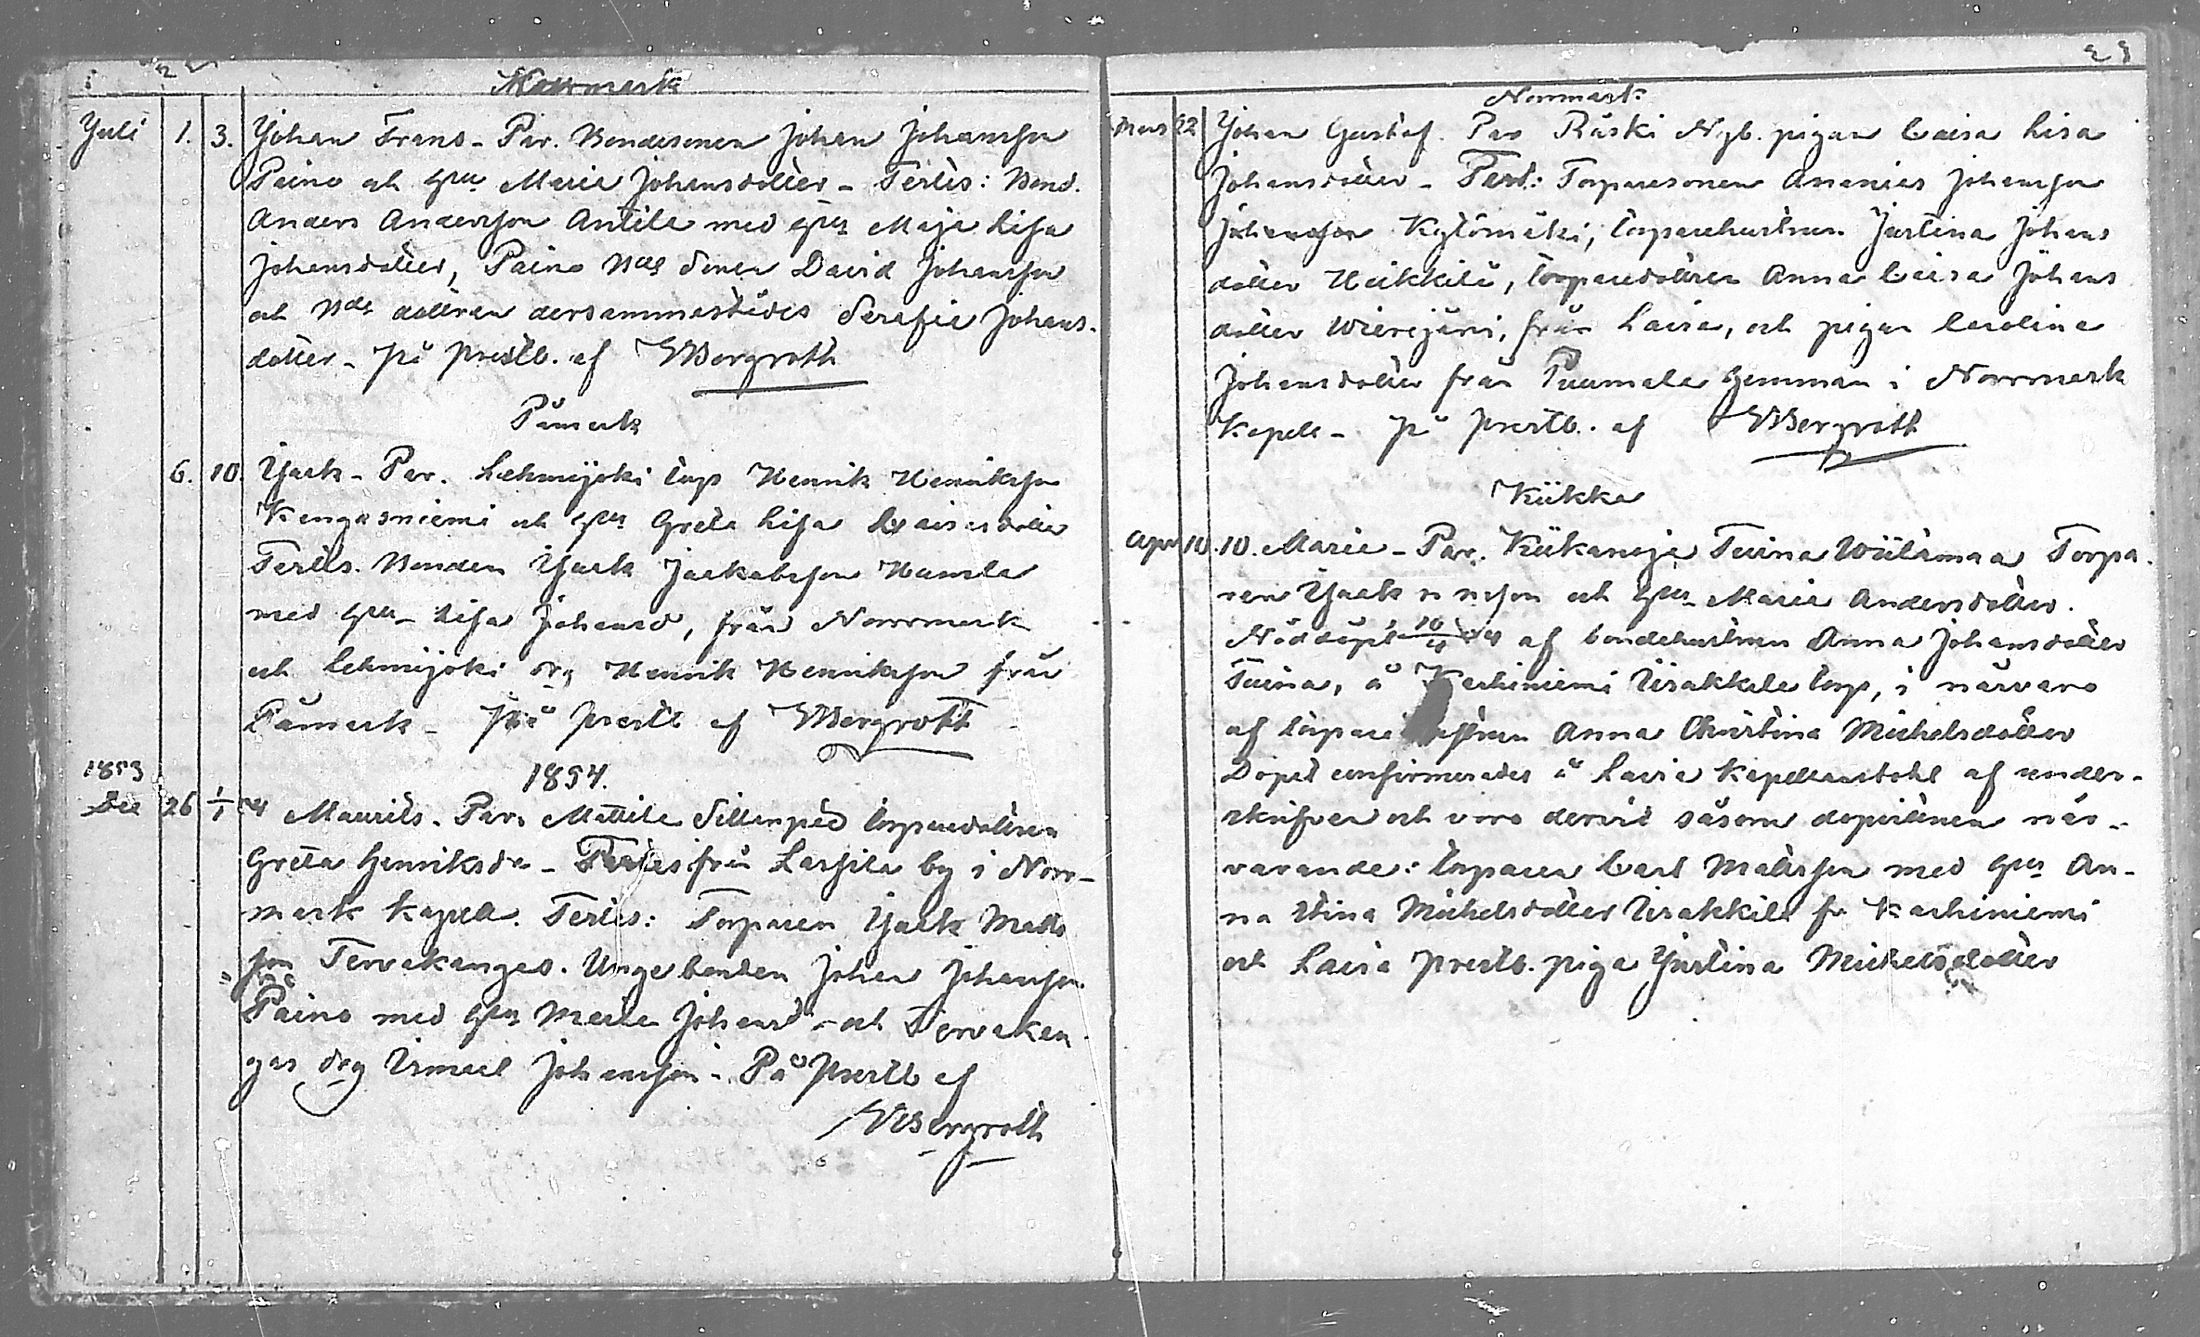 Norrmark
Juli 1. 3. Johan Frans - Par. Bondesonen Johan Johansson
Paino och hu Maria Johansdotter - Testes: Bond.
Anders Andersson Antila med hu Maja Lisa
Johansdotter, Paino Bde sonen David Johansson
och Bde dottren dersammastädes Serafia Johans-
dotter - på prestb. af Bergroth
Påmark
6. 10. Isak - Par. Lehmijoki torp Henrik Henriksson
Kengasniemi och hu Greta Lisa Isaksdotter
Testes. Bonden Isak Jaakobsson
med hu Lisa Johansd, från Norrmark
och Lehmijoki drg Henrik Henriksson från
Påmark - På prestb af Bergroth
1854.
1853
Dec 26 1/1 54 Maurits. Par. Mattila Sillanpää torparedottren
Greta Henriksdr - Testes från Lassila by i Norr-
mark Kapell. Testes: Torparen Isak Matts
son Tervakangas. Unge bonden Johan Johansson
Paino med hu Maria Johansd - och Tervakan
gas drg Ismael Johansson - På prestb af
Bergroth
23
Norrmark
Mars 22 Johan Gustaf. Par Räski Nyb. pigan Caisa Lisa
Johansdotter - Test: Torparesonen Ananias Johansson
Johansson Kylömäki, torparehustrun Justina Johans
dotter Heikkilä, torparedottren Anna Caisa Johans
dotter Wierijärvi, från Lavia, och pigan Carolina
Johansdotter från Puumala hemman i Norrmark
Kapell - på prestb. af Bergroth
Kiikka
Apr 10. 10. Maria - Par. Kiikanoja Tuina Wiilamaa Torpa-
ren Isak n nsson och hu Maria Andersdotter.
Nöddöpt 10/4 54 af bondehustrun Anna Johansdotter
Tuina, å Karhiniemi Urakkila torp, i närvaro
af torpare hustrun Anna Christina Michelsdotter
Dopet confirmerades å Lavia Kapellansbohl af under-
skrifven och voro dervid såsom dopvittnen när-
varande: torparen Carl Mattsson med hu An-
na Stina Michelsdotter Urakkila fr Karhiniemi
och Lavia prestb. piga Justina Michelsdotter